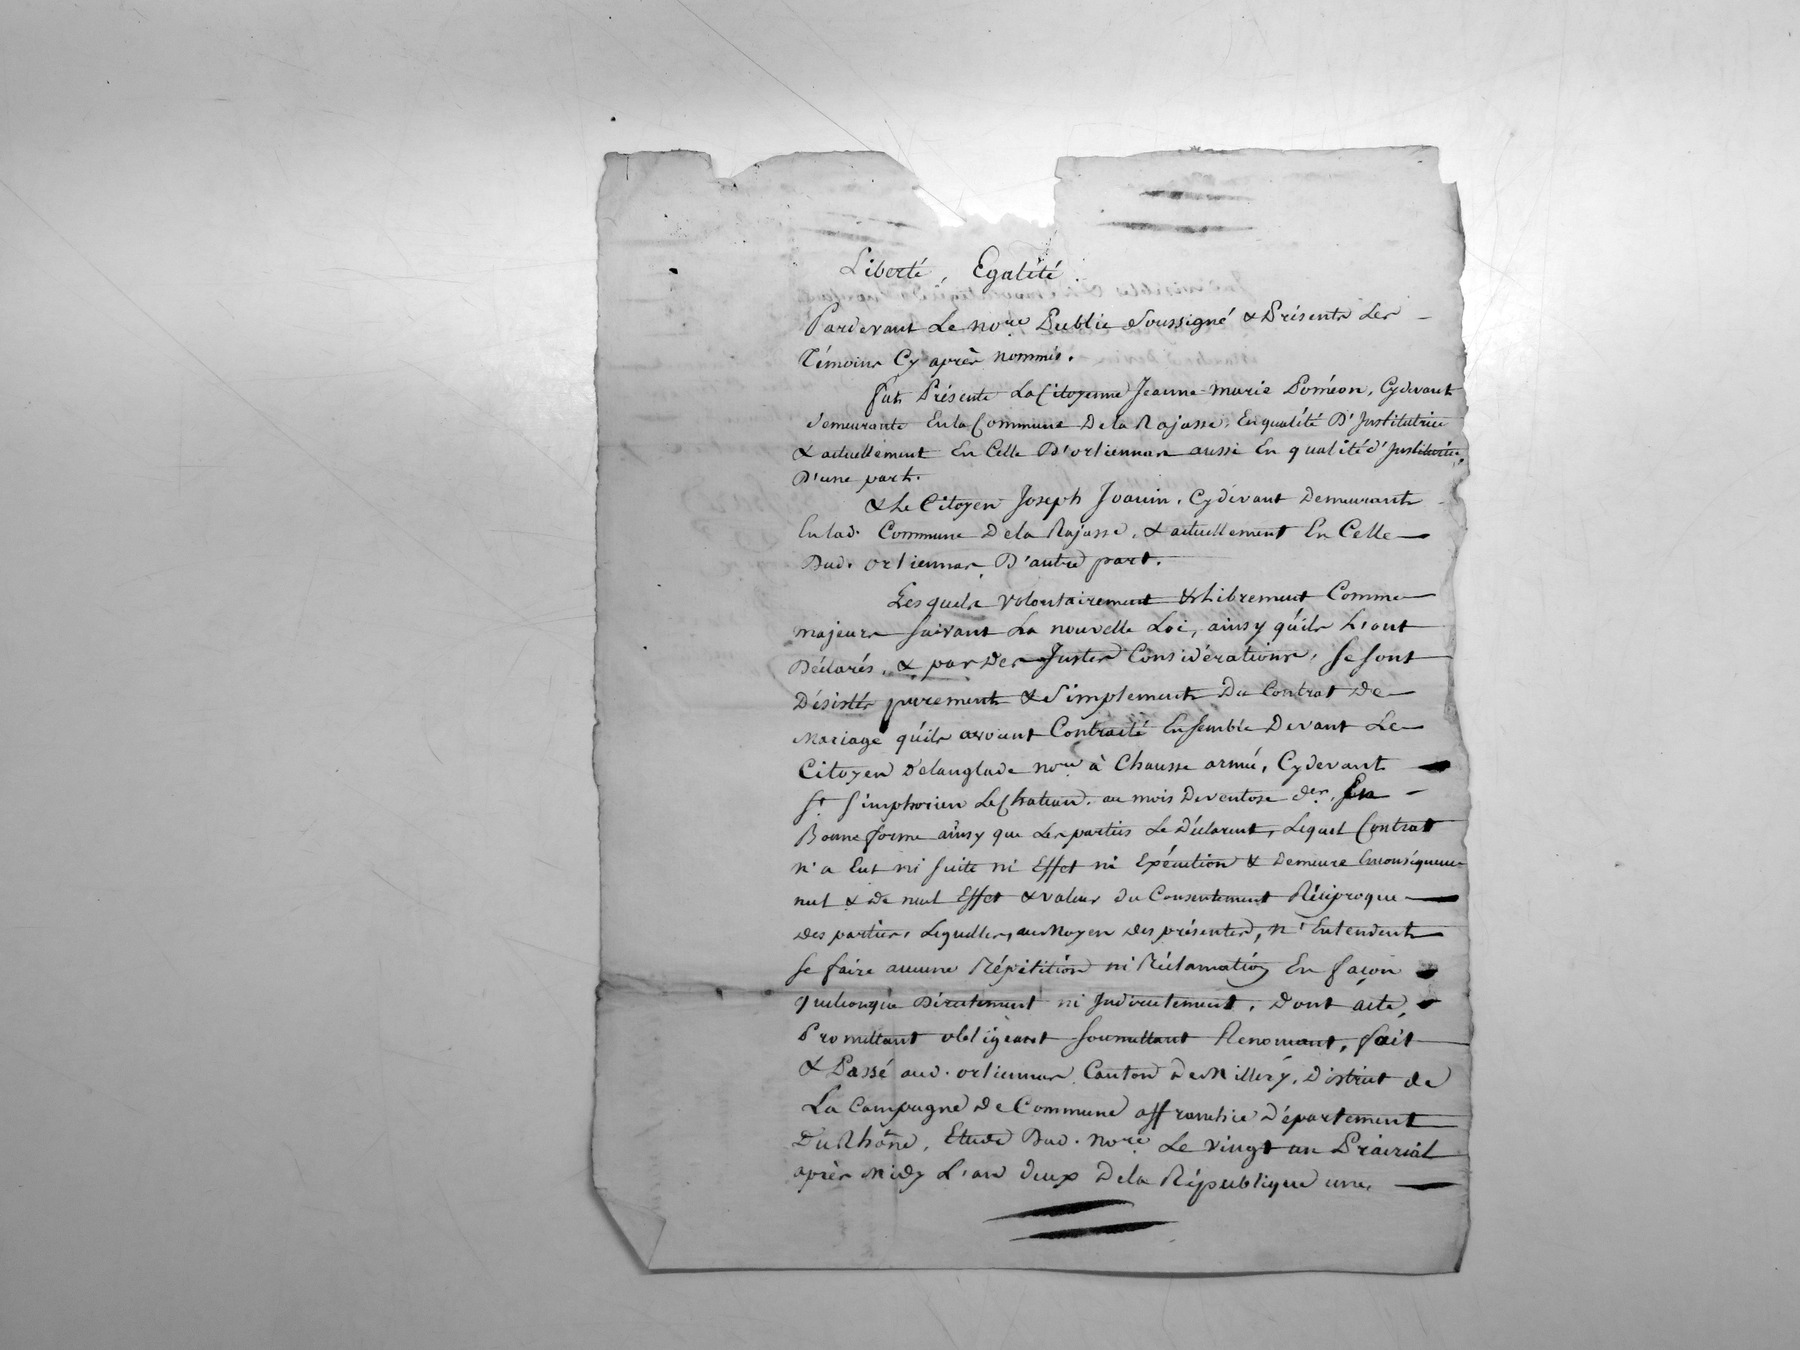 Liberté, Egalité
Pardevant Le no.re Public Soussigné & Présents Les
Témoins Cy après nommés.
fut Présente La Citoyenne Jeanne Marie Poméon, Cydevant
demeurante En la Commune De la Rajasse, En qualité D'Institutrice
& actuellement En Celle D'orliennas aussi En qualité d'Institutrice,
D'une part.
& Le Citoyen Joseph Joanin, Cydevant Demeurant
En lad. Commune De la Rajasse, & actuellement En Celle
Dud. orliennas, D'autre part.
Lesquels volontairement & Librement Comme
majeurs suivant La nouvelle Loi, ainsy qu'ils L'ont
Déclarés, & par Des Justes Considérations, se sont
Désistés purement & Simplement Du Contrat De
Mariage qu'ils avoient Contracté Ensemble Devant Le
Citoyen Delanglade no.re à Chausse armée, Cydevant
St. Simphorien Le Chateau, au mois De ventose der. En
Bonne forme ainsy que Les parties Le Déclarent, Lequel Contrat
n'a Eut ni suite ni Effet ni Exécution & Demeure Enconséquence
nul & de nul Effet & valeur du Consentement Réciproque
des parties, Lequelles, au Moyen des présentes, n'Entendent
se faire aucune Répétition ni Réclamation En façon
quelconque Directement ni Indirectement, Dont acte,
Promettant obligeant soumettant Renonçant, fait
& Passé aud. orliennas Canton De Millery, District de
La Campagne de Commune affranchie Département
Du Rhône, Etude Dud. no.re Le vingt un Prairial
après Midy L'an deux De la République une,